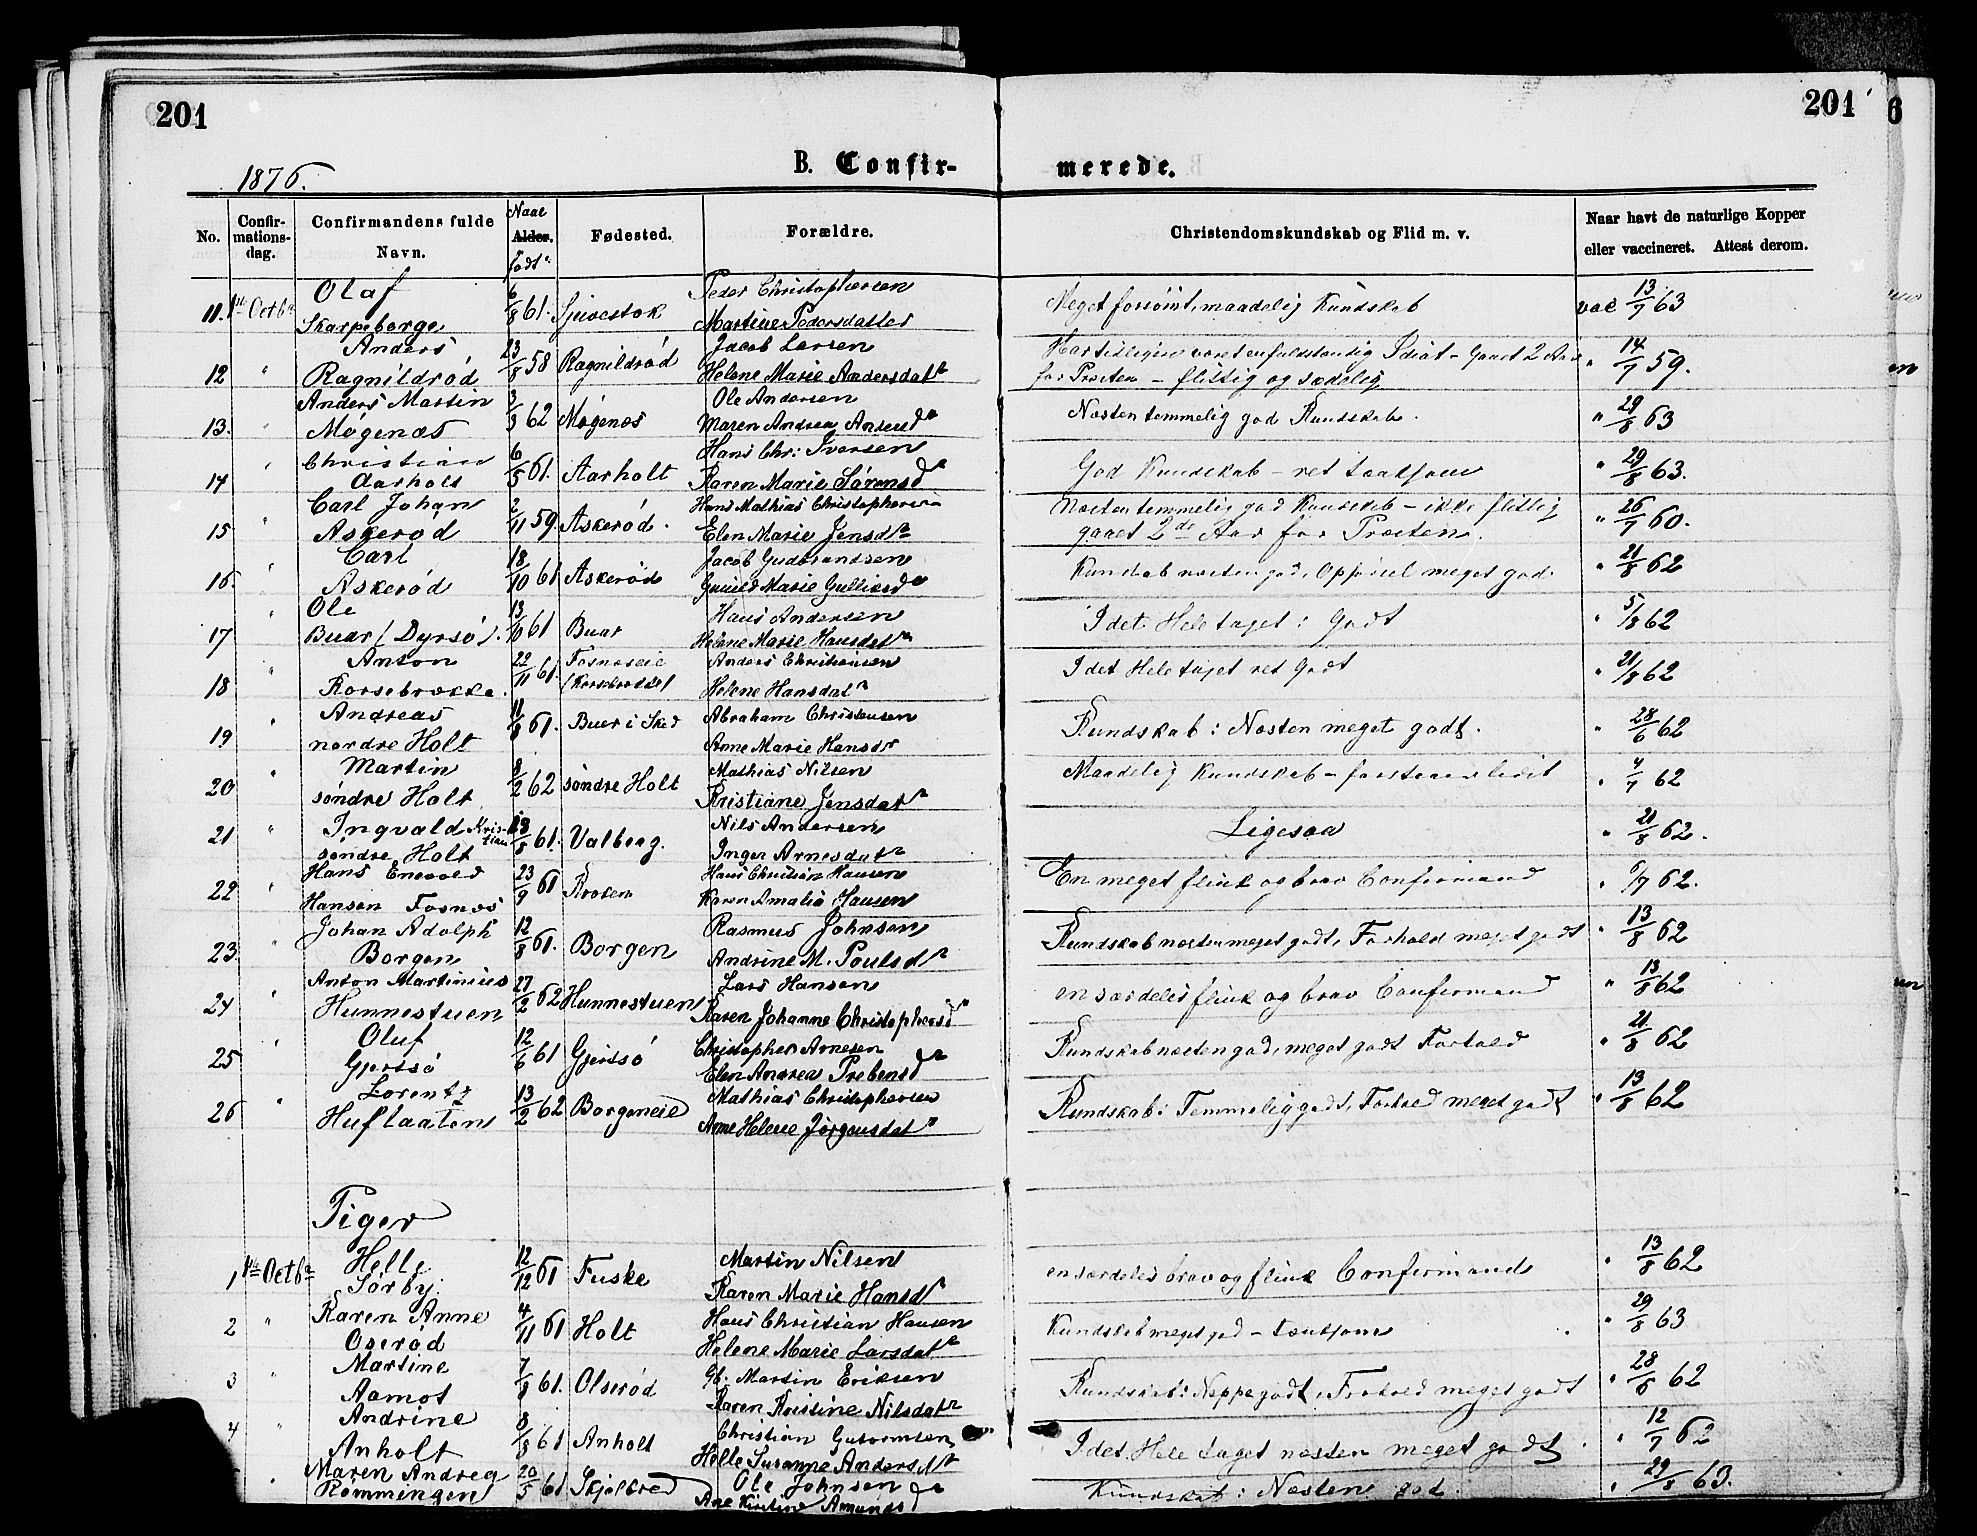 201
201
6
1876.
B. Confir-
merede.
No.
Confir-
mations-
dag.
Confirmandens fulde
Navn.
Naar
Alder.
født
Fødested.
Forældre.
Christendomskundskab og Flid m. v.
Naar havt de naturlige Kopper
eller vaccineret. Attest derom.
Olaf Peder Christophersen
11. 1ste Octbr Skarpeborge 6/8 61. Martine Pedersdatter Meget forsømt, maadelig Kundskab vac 13/7 63
Anders Jacob Larsen Har tidligere været en fuldstændig Idiot - Gaaet 2 Aar
12 " Ragnildrød 23/8 58 Ragnildrød Helene Marie Andersdatr for Præsten - flittig og sædelig " 14/7 59.
Anders Martin Ole Andersen
13. " Møgenæs 3/3 62 Møgenæs Maren Andrea Ansendr Næsten temmelig god Kundskab. " 29/8 63
Christian Hans Chr: Iversen
14 " Aarholt 6/5 61. Aarholt Karen Marie Sørensdr God Kundskab - ret taktfom " 29/8 63.
Carl Johan Hans Mathias Christophersen Næsten temmelig god Kundskab - ikke flittig
15 " Askerød 2/11 59. Askerød. Elen Marie Jensdtr gaaet 2de Aar for Præsten. " 26/7 60.
Carl Jacob Gudbrandsen
16. " Askerød 18/10 61 Askerød Gunild Marie Gulliksdr Kundskab næsten god, Opførsel meget god. " 21/8 62
Ole Hans Andersen
17 " Buar (Dyrsø). 13/10 61 Buar Helene Marie Hansdatr I det Hele taget: Godt " 5/8 62
Anton Fosnæseie Anders Christiansen
18 " Korsebrække. 22/11 61. (Korsebrække) Helene Hansdatr I det Hele taget ret Godt " 21/8 62
Andreas Abraham Christensen
19 " nordre Holt 11/8 61. Buer i Sked Anne Marie Hansdtr Kundskab: Næsten meget godt. " 28/6 62
Martin Mathias Nilsen
20 " søndre Holt 8/2 62 søndre Holt Kristiane Jensdatr Maadelig Kundskab - " 4/7 62
Ingvald Kris- Nils Andersen
21 " søndre Holt tian 61. Valberg. Inger Arnesdatr Ligesaa " 21/8 62.
Hans Enevold Hans Christian Hansen
22 " Hansen Fosnæs 23/9 61 Kroken Karen Amalia Hansen En meget flink og brav Confirmand " 6/7 62.
Johan Adolph Rasmus Johnsen
23. " Borgen 12/8 61. Borgen Andrine M. Poulsdtr Kundskab næsten meget godt, Forhold meget godt " 13/8 62
Anton Martinius Lars Hansen
24 " Hunnestuen 27/2 62 Hunnestuen Karen Johanne Christophersdr en særdeles flink og brav Confirmand " 13/8 62
Oluf Christopher Arnesen
25 " Gjersø 12/6 61 Gjersø Elen Andrea Prebensdr Kundskab næsten god, meget godt Forhold " 21/8 62
Lorentz Mathias Christophersen
26 " Huflaaten 13/2 62 Borgeneie Anne Helene Jörgensdatr Kundskab: Temmelig godt, Forhold meget godt " 13/8 62
Piger
Helle Martin Nilsen
1 1ste Octbr Sørby. 12/12 61 Fuske Karen Marie Hansdtr en særdeles brav og flink Confirmand " 13/8 62
Karen Anne Hans Christian Hansen
2 " Oserød 4/11 61 Holt Helene Marie Larsdatr Kundskab meget god - " 29/8 63
Martine Gb. Martin Eriksen
3 " Aamot 7/8 61. Olserød Karen Kristine Nilsdatr Kundskab: Neppe godt, Forhold meget godt " 28/6 62
Andrine Christian Gutormsen
4 " Anholt 8/8 61 Anholt Helle Susanne Andersdtr I det Hele taget næsten meget godt. " 12/7 62
Maren Andrea Ole Johnsen
" Rømmingen 20/5 61 Skjolbred Ane Kirstine Amundsdr Kundskab: Næsten god. " 29/8 63.